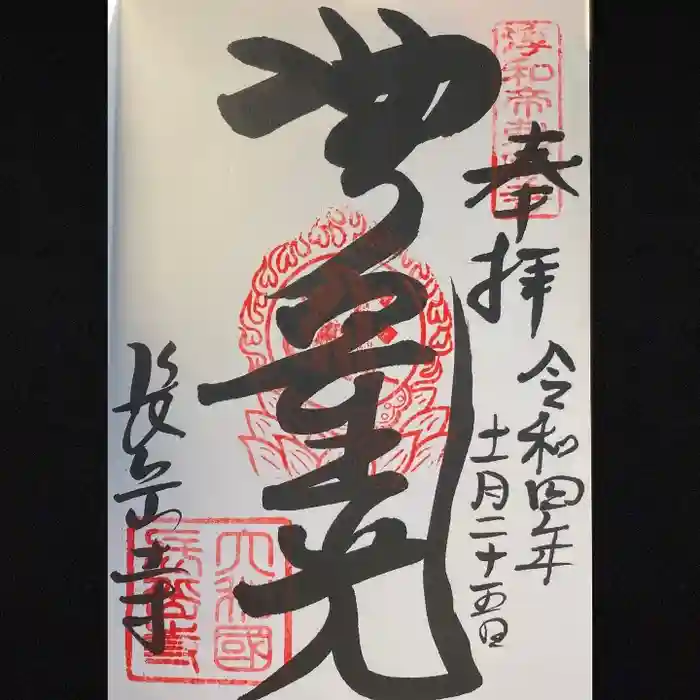 淳和帝
奉拝
令和四年
十一月二十五日
無量光
長岳寺
大和國
長岳寺